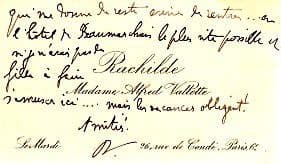 qui me donne du reste envie de rentrer... en
l'hotel de Beaumarchais le plus vite possible et
filer à faire
Rachilde
Madame Alfred Vallette
s'amuser ici.... mais les vacances obligent!
Amitiés!
Le Mardi
R
26, rue de Condé, Paris 6e